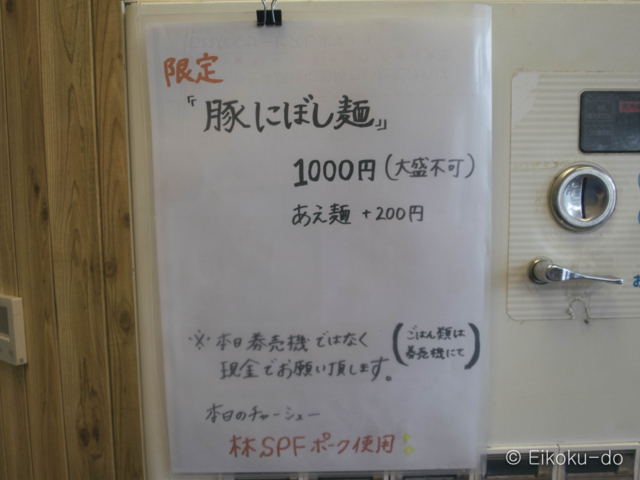 限定
「豚にぼし麺」
1000円(大盛不可)
あえ麺 +200円
※本日券売機ではなく
現金でお願い頂します。
(ごはん類は
券売機にて)
本日のチャーシュー
林SPFポーク使用
お
© Eikoku-do